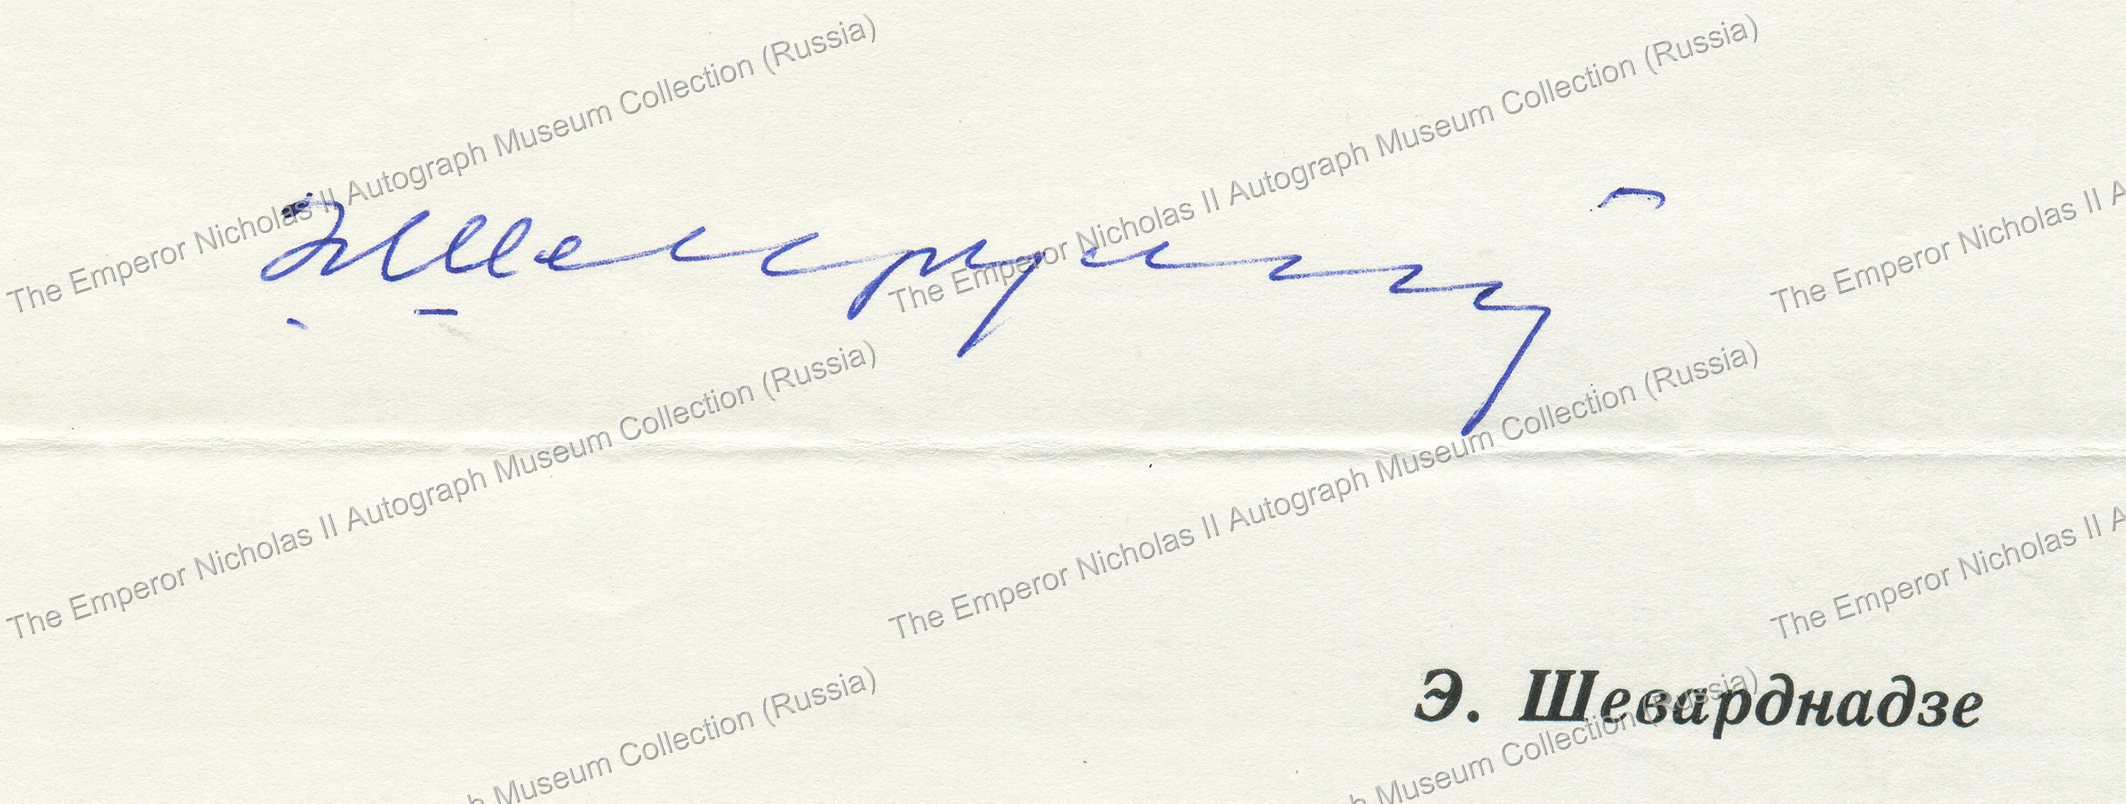 The Emperor Nicholas II Autograph Museum Collection (Russia)
The Emperor Nicholas II Autograph Museum Collection (Russia)
The Emperor Nicholas II A
The Emperor Nicholas II Autograph Museum Collection (Russia)
The Emperor Nicholas II Autograph Museum Collection (Russia)
The Emperor Nicholas II A
Э. Шеварднадзе
h Museum Collection (Russia)
h Museum Collection (Russia)